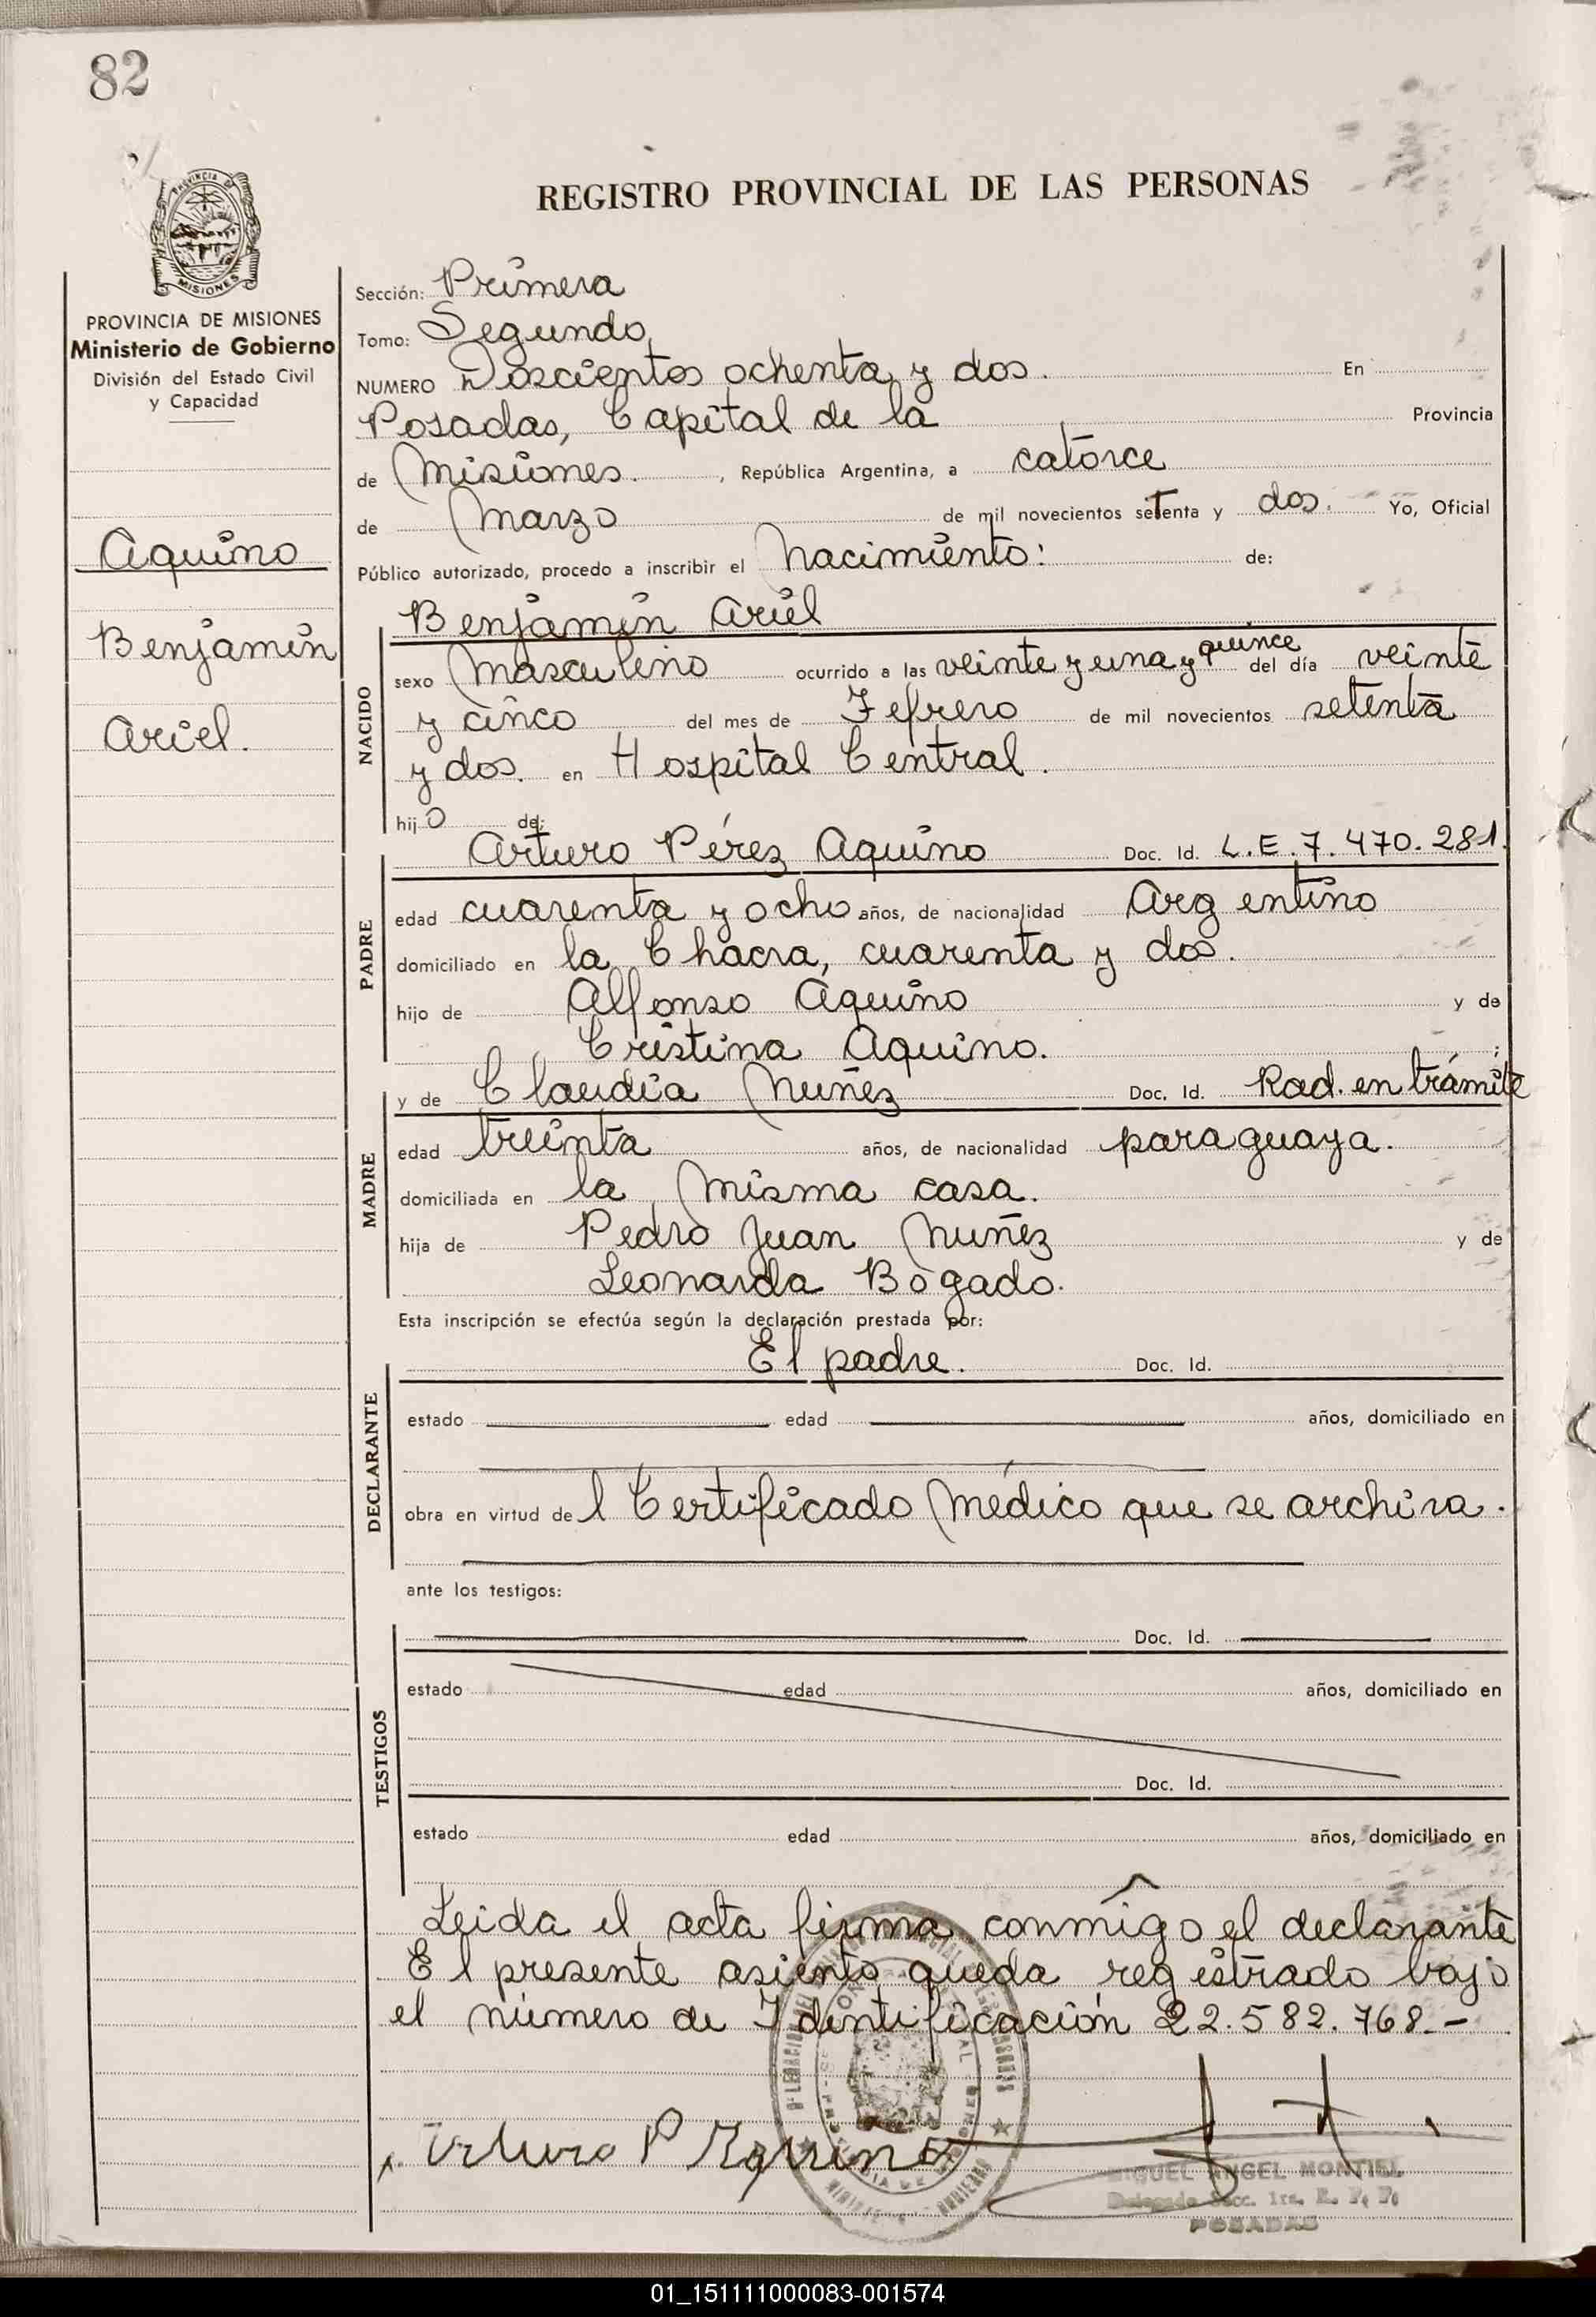 82
PROVINCIA DE
MISIONES
REGISTRO PROVINCIAL DE LAS PERSONAS
PROVINCIA DE MISIONES
Ministerio de Gobierno
División del Estado Civil
y Capacidad
Aquino
Benjamin
Ariel.
Sección: Primera
Tomo: Segundo
NUMERO Doscientos ochenta y dos. En
Posadas, Capital de la Provincia
de Misiones. , República Argentina, a catorce
de Marzo de mil novecientos setenta y dos. Yo, Oficial
Público autorizado, procedo a inscribir el Nacimiento: de:
Benjamin Ariel
NACIDO
sexo Masculino ocurrido a las veinte y una y quince del día veinte
y cinco del mes de Fefrero de mil novecientos setenta
y dos. en Hospital Central.
hijo de:
Arturo Pérez Aquino Doc. Id. L.E. 7.470.281.
PADRE
edad cuarenta y ocho años, de nacionalidad Argentino
domiciliado en la Chacra, cuarenta y dos.
hijo de Alfonso Aquino y de
Cristina Aquino. ;
y de Claudia Nuñez Doc. Id. Rad. en trámite
MADRE
edad treinta años, de nacionalidad paraguaya.
domiciliada en la misma casa.
hija de Pedro Juan Nuñez y de
Leonarda Bogado.
Esta inscripción se efectúa según la declaración prestada por:
El padre. Doc. Id.
DECLARANTE
estado edad años, domiciliado en
obra en virtud del Certificado Médico que se archiva.
ante los testigos:
Doc. Id.
TESTIGOS
estado edad años, domiciliado en
Doc. Id.
estado edad años, domiciliado en
Leida el acta firma conmigo el declarante
El presente asiento queda registrado bajo
el número de Identificación 22.582.768.-
Arturo P Aquino
MIGUEL ANGEL MONTIEL
Delegado Secc. 1ra. R. P. P.
POSADAS
01_151111000083-001574